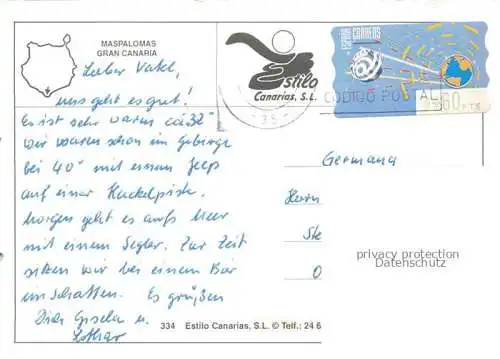 MASPALOMAS
GRAN CANARIA
Lieber Vater,
uns geht es gut!
Es ist sehr warm ca 32°
wir waren schon im Gebirge
bei 40° mit einem Jeep
auf einer Huckelpiste.
Morgen geht es aufs Meer
mit einem Segler. Zur Zeit
sitzen wir bei einem Bier
im Schatten. Es grüßen
Dich Gisela u.
Lothar
Estilo
Canarias, S.L.
ESPAÑA CORREOS
CODIGO POSTAL
60 PTS
Germana
Herrn
St
O
privacy protection
Datenschutz
334 Estilo Canarias, S.L. © Telf.: 24 6